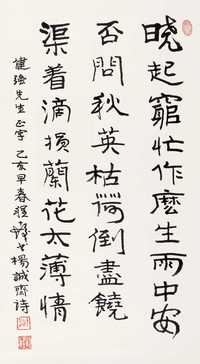 晓起窮忙作麼生雨中安
否問秋英枯荷倒盡饒
渠着滴損蘭花太薄情
健强先生正字 乙亥早春 楊誠齋詩